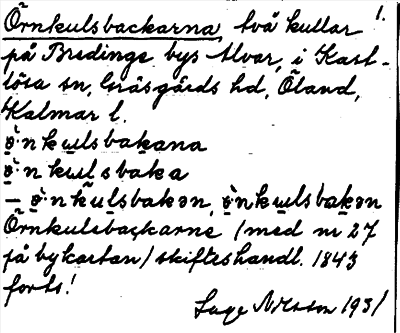 Örnkulsbackarna, två kullar 1.
på Bredinge bys Alvar, i Kast-
lösa sn, Gräsgårds hd, Öland,
Kalmar l.
ö̀nkulsbakana
ö̀nkulsbaka
– ö̀nkulsbakən, ö̀nkulsbakən
Örnkulsbackarne (med nr 27
på bykartan) skifteshandl. 1843
forts!
Nilsson 1931